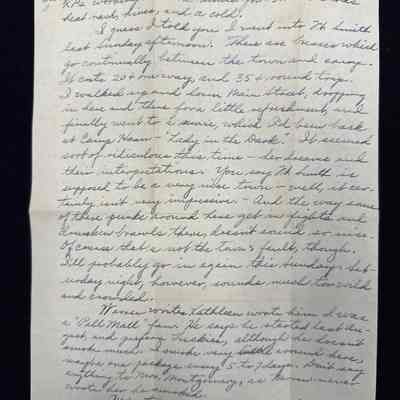 heat rash, hives, and a cold.
I guess I told you I went into Ft Smith
last Sunday afternoon. There are busses which
go continually between the town and camp.
It costs 20¢ one way, and 35¢ round trip.
I walked up and down Main Street, dropping
in here and there for a little refreshment, and
finally went to a movie, which I'd been back
at Camp Haan - "Lady in the Dark." It seemed
sort of ridiculous this time - her dreams and
their interpretations. You say Ft Smith is
supposed to be a very nice town - well, it cer-
tainly isn't very impressive. - And the way some
of these punks around here get in fights and
drunken brawls there, doesn't sound so nice.
Of course that's not the town's fault, though.
I'll probably go in again this Sunday. Sat-
urday night, however, sounds much too wild
and crowded.
wrote Kathleen wrote him I was
a "Pall Mall" fan. He says he started last
and prefers although he doesn't
smoke much. I smoke very little around here,
maybe one package every 5 to 7 days. Don't say
anything to Mrs. Montgomery, as never
wrote he smoked.